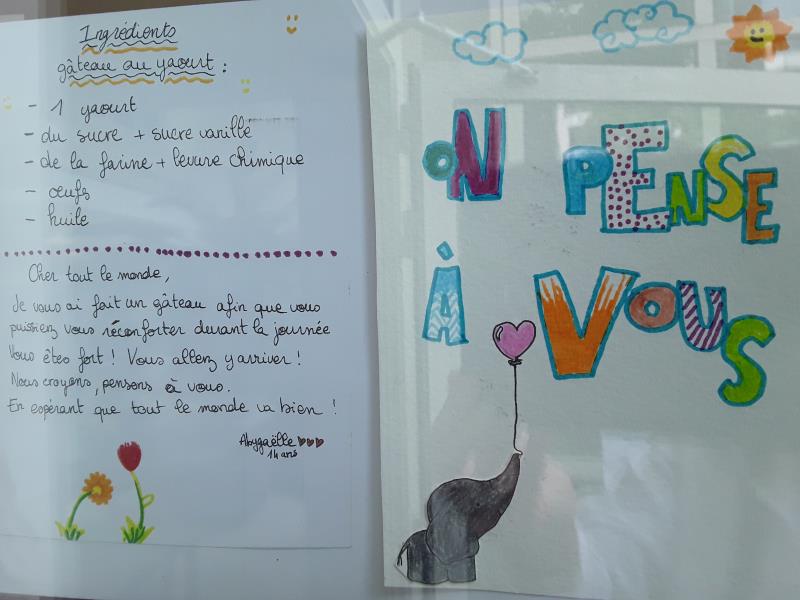 Ingrédients
gâteau au yaourt :
- 1 yaourt
- du sucre + sucre vanillé
- de la farine + levure chimique
- œufs
- huile
Cher tout le monde,
Je vous ai fait un gâteau afin que vous
puissiez vous réconforter durant la journée
Vous êtes fort ! Vous allez y arriver !
Nous croyons, pensons à vous.
En espérant que tout le monde va bien !
Abygaëlle
14 ans
ON PENSE
À VOUS